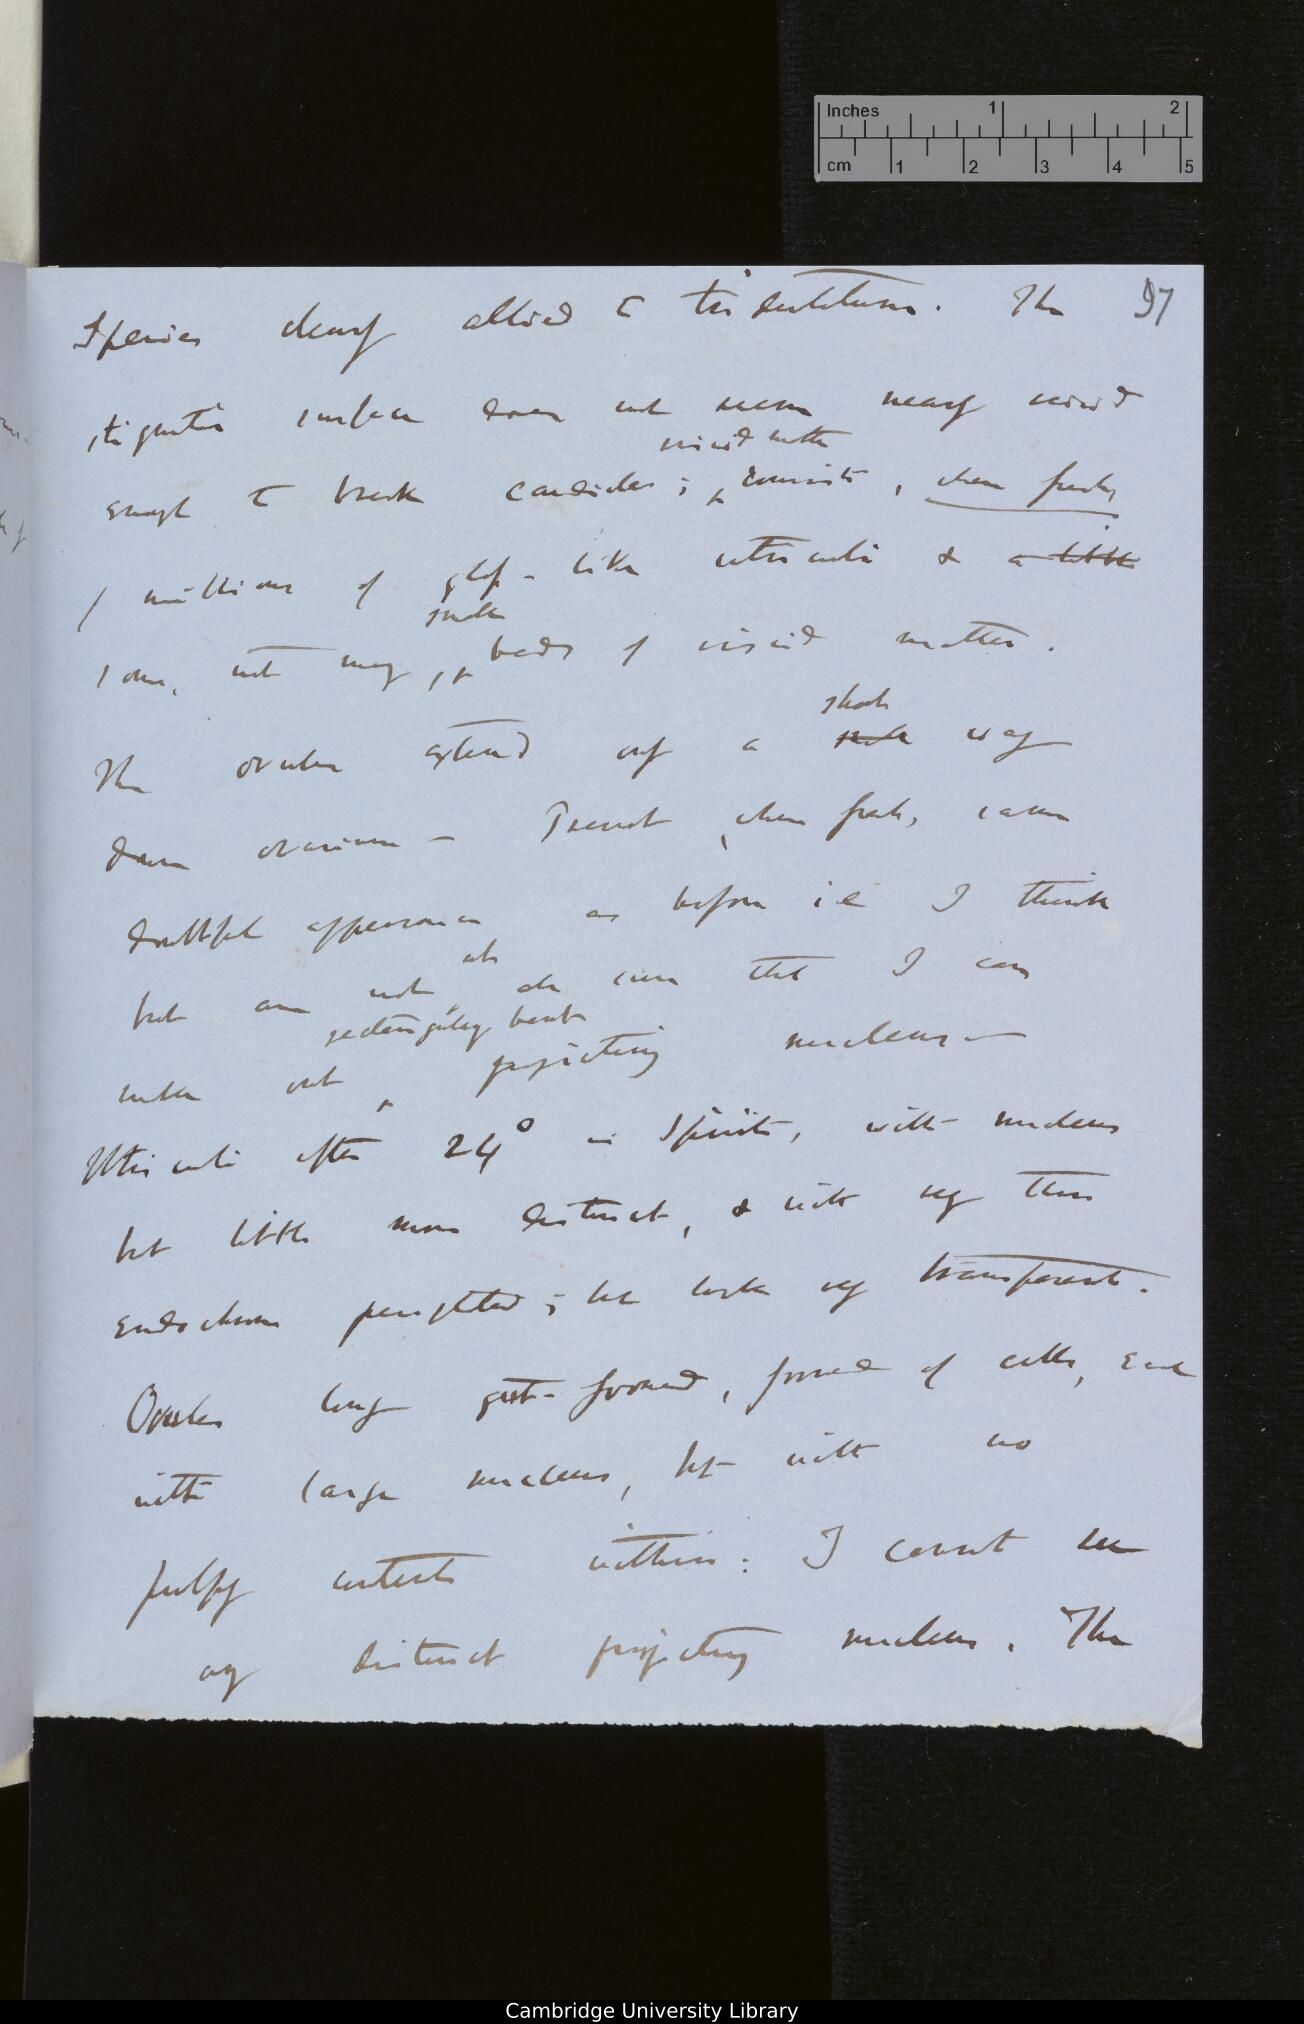 Inches 1 2
cm 1 2 3 4 5
97
Species closely allied to tridentatum. The
stigmatic surface does not seem nearly viscid
enough to break caudicles; viscid matter consists, when fresh,
/ millions of like utriculi & a little
some, not many, small beads of viscid matter.
The ovules extend only a short way
down ovarium — Present, when fresh, same
doubtful appearance as before i.e I think
but am not at all sure that I can
make out projecting nucleus —
Utriculi after 24° in Spirits, with nucleus
but little more distinct, & with very thin
endochrome ; but look very transparent.
Ovules long formed, formed of cells, each
with large nucleus, but with no
pulpy contents within: I cannot see
any distinct projecting nucleus. The
Cambridge University Library